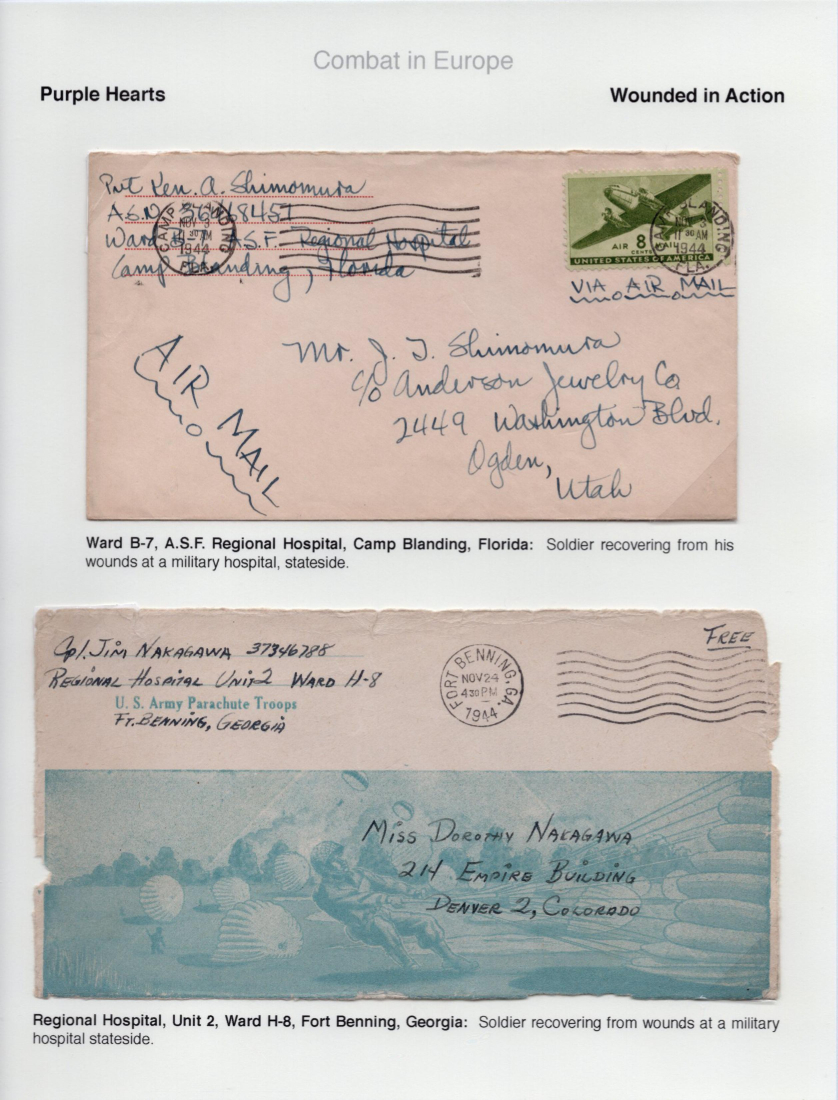 Combat in Europe
Purple Hearts
Wounded in Action
Pvt Ken. A. Shimomura
A.S.N.
Ward B-7 A.S.F. Regional Hospital
Camp Blanding, Florida
CAMP BLANDING
NOV 3
1944
FLA.
AIR 8 MAIL
CENTS
UNITED STATES OF AMERICA
CAMP BLANDING
11 30 AM
1944
FLA.
VIA AIR MAIL
AIR MAIL
Mr. J. T. Shimomura
c/o Anderson Jewelry Co
2449 Washington Blvd.
Ogden,
Utah
Ward B-7, A.S.F. Regional Hospital, Camp Blanding, Florida: Soldier recovering from his
wounds at a military hospital, stateside.
Cpl. Jim Nakagawa 37346788
Regional Hospital Unit 2 Ward H-8
U. S. Army Parachute Troops
Ft. Benning, Georgia
FORT BENNING, GA.
NOV 24
4 30 PM
1944
FREE
Miss Dorothy Nakagawa
214 Empire Building
Denver 2, Colorado
Regional Hospital, Unit 2, Ward H-8, Fort Benning, Georgia: Soldier recovering from wounds at a military
hospital stateside.